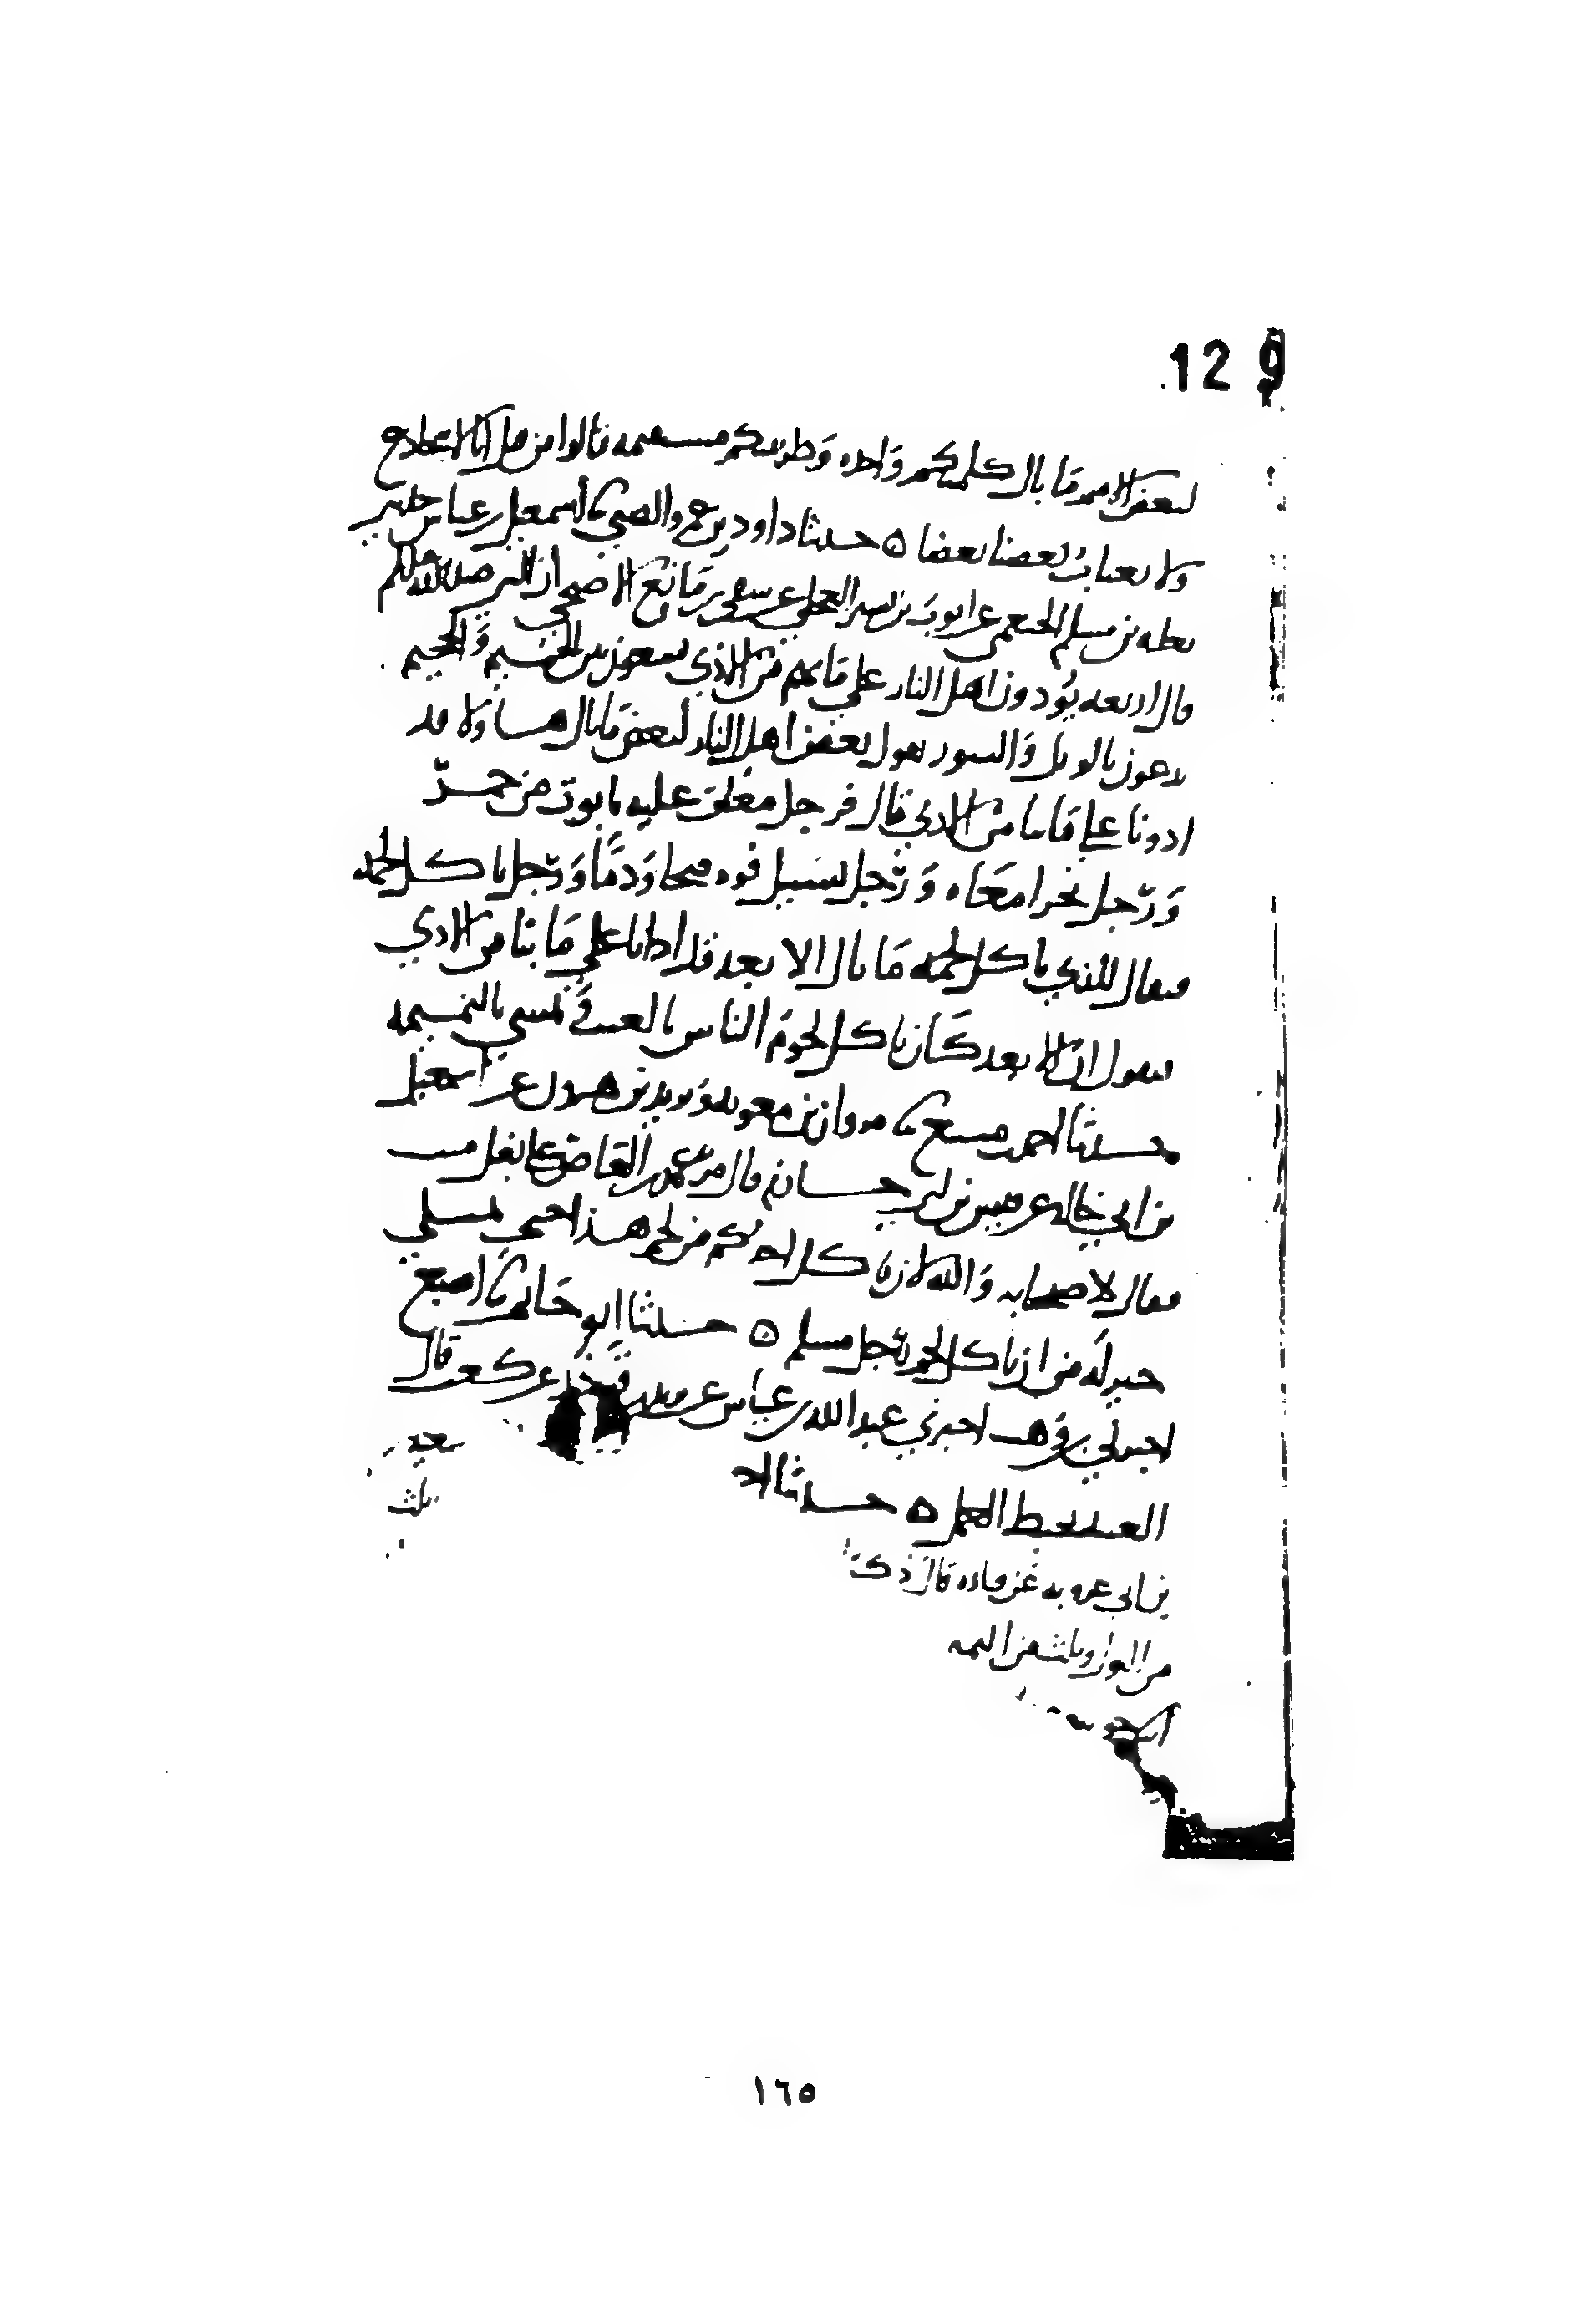 129
لبعض الامم ما بال كلمتكم واحده وطريقتكم مستقيمه قالوا من قبل انا لا نتخادع
ولا يغتاب بعضنا بعضا ه حدثنا داود بن عمرو الضبي نا اسمعيل بن عياش حدثني
ثعلبه بن مسلم الخثعمي عن ايوب بن بشير العجلي عن شفي بن ماتع الاصبحي ان النبي صلى الله عليه وسلم
قال اربعه يؤذون اهل النار على ما بهم من الاذي يسعون بين الحميم والجحيم
يدعون بالويل والثبور يقول بعض اهل النار لبعض ما بال هاولا قد
اذونا على ما بنا من الاذي قال فرجل مغلق عليه تابوت من جمر
ورجل يجر امعاه ورجل يسيل فوه قيحا ودما ورجل ياكل لحمه
فيقال للذي ياكل لحمه ما بال الابعد قد اذانا على ما بنا من الاذي
فيقول ان الابعد كان ياكل لحوم الناس بالغيبه ويمشي بالنميمه
حدثنا احمد بن منيع نا مروان بن معويه ويزيد بن هرون عن اسمعيل
بن ابي خالد عن قيس بن ابي حازم قال مر عمرو بن العاص على بغل ميت
فقال لاصحابه والله لان ياكل احدكم من لحم هذا حتى يمتلي
خير له من ان ياكل لحم رجل مسلم ه حدثنا ابو حاتم نا اصبغ
اخبرني بن وهب اخبرني عبد الله بن عياش عن يزيد بن قوذر عن كعب قال
الغيبه تحبط العمل ه حدثنا احمد سعيد
بن ابي عروبه عن قتاده قال ذكر ثلث
من البول وثلث من النميمه
١٦٥